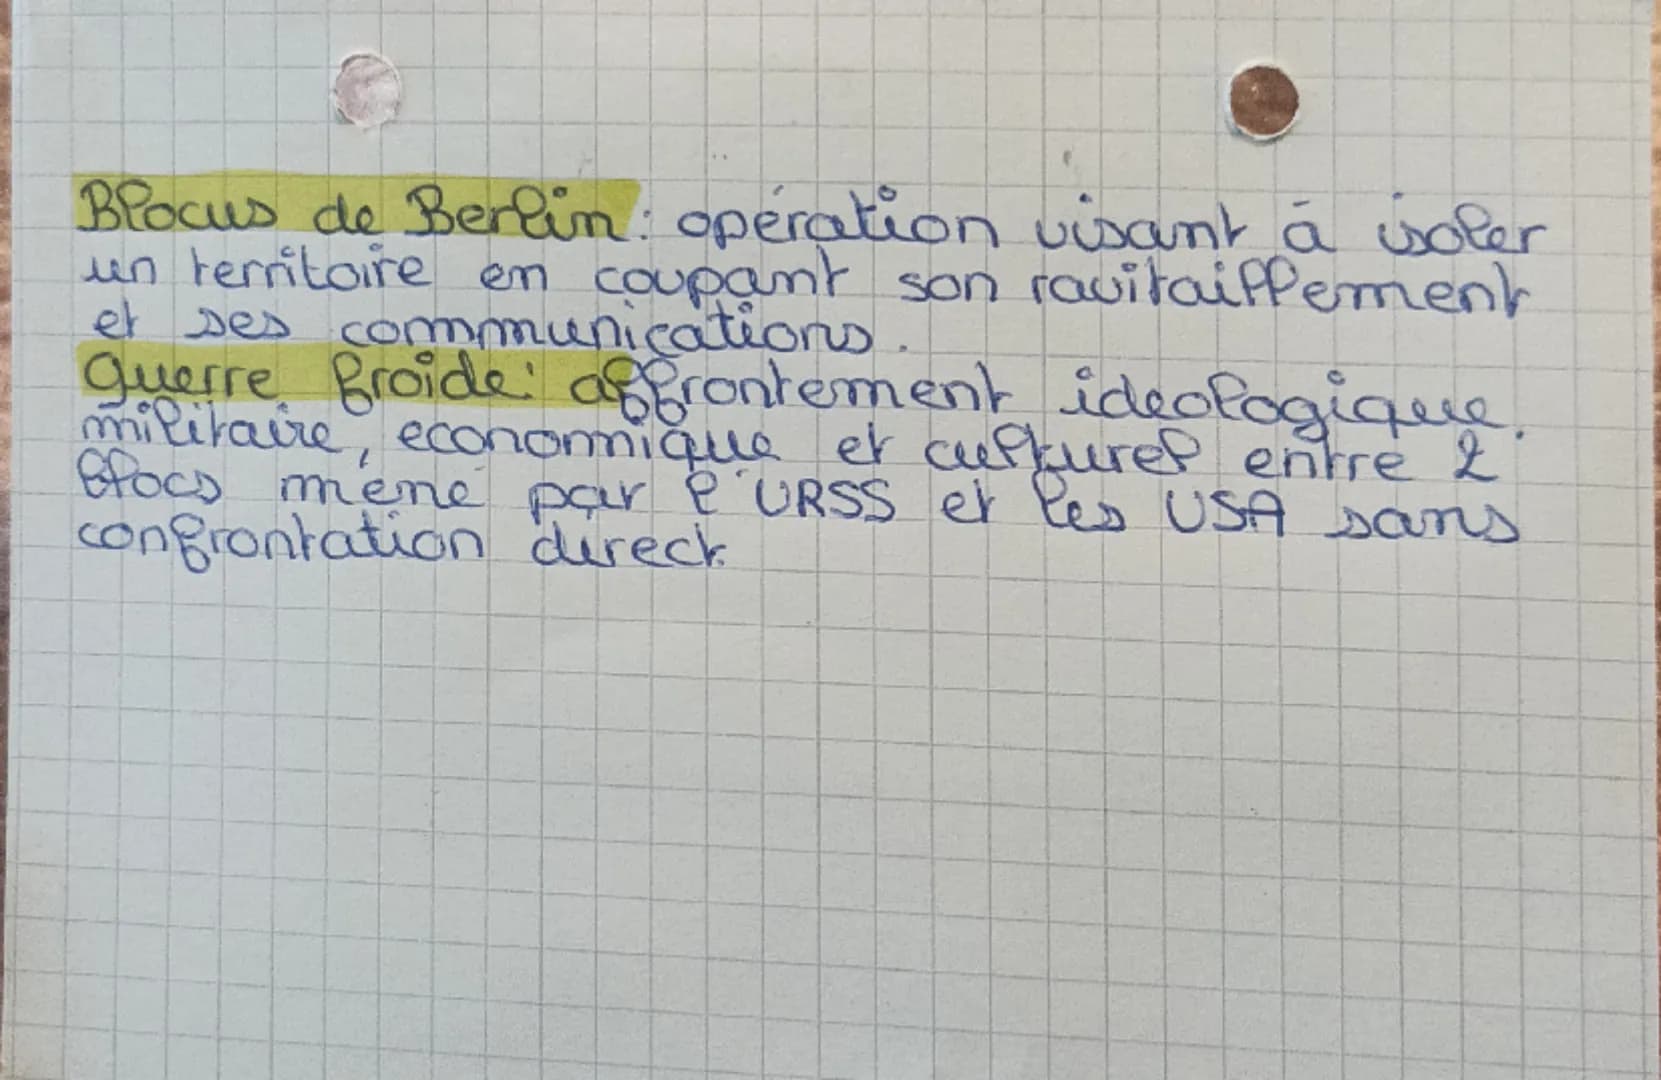 Blocus de Berlin : opération visant à isoler
un territoire en coupant son ravitaillement
et ses communications.
Guerre froide : affrontement idéologique,
militaire, économique et culturel entre 2
blocs mené par l'URSS et les USA sans
confrontation direct.